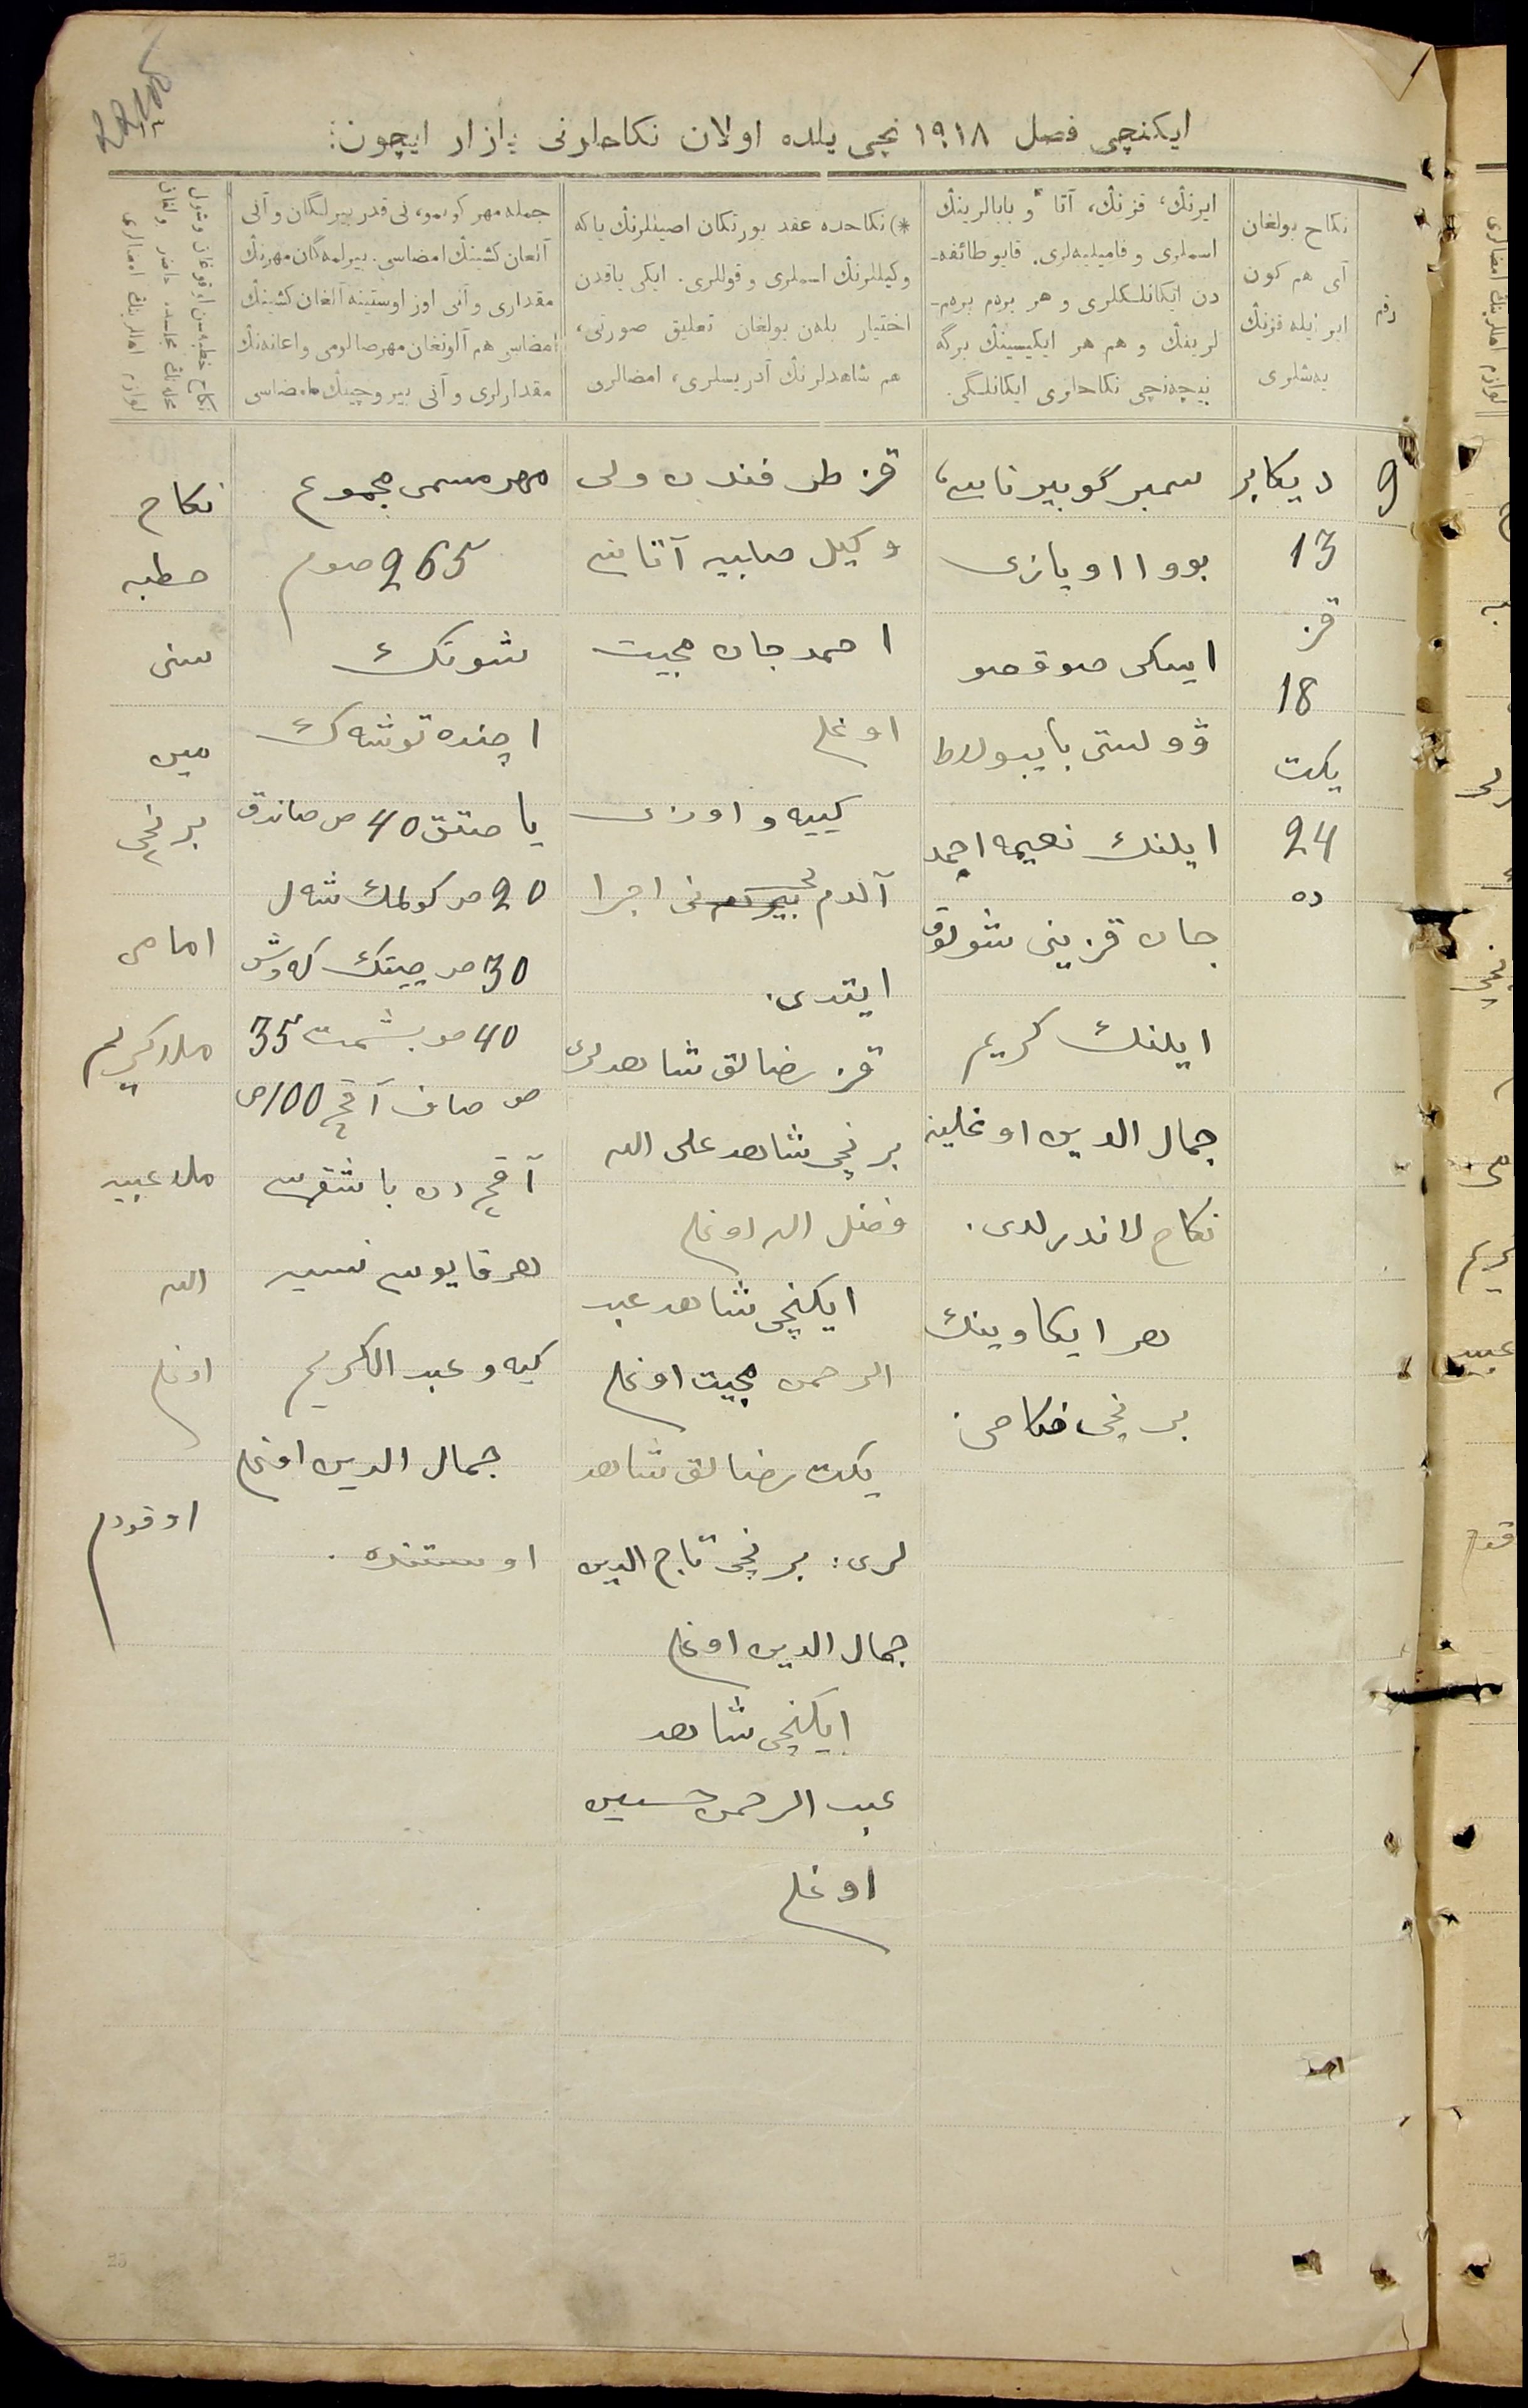 ایکنچی فصل ۱۹۱۸ نچی یلده اولان نکاحلرنی یازار ایچون:
رقم
نکاح بولغان
آی هم کون
ایر ایله قزنڭ
یه‌شلری
ایرنڭ، قزنڭ، آتا و بابالرینڭ
اسملری و فامیلیه‌لری. قایو طائفه‌-
دن ایکانلکلری و هر برم برم-
لرینڭ و هم هر ایکیسینڭ برگه
نیچه‌نچی نکاحلری ایکانلگی.
*) نکاحده عقد یورتکان اصیللرنڭ یا که
وکیللرنڭ اسملری و قوللری. ایکی یاقدن
اختیار بلەن بولغان تعلیق صورتی،
هم شاهدلرنڭ آدریسلری، امضالری
جمله مهر کوبمو، نی قدر بیرلگان و آنی
آلغان کشینڭ امضاسی. بیرلمه‌گان مهرنڭ
مقداری و آنی اوز اوستینه آلغان کشینڭ
امضاسی هم آلونغان مهر صالومی و اعانه‌نڭ
مقدارلری و آنی بیروچینڭ امضاسی
نکاح خطبه‌سن اوقوغان و شول
9
دیکابر
13
قز
18
یکت
24
ده
سمبر گوبیرناسی،
بووا اویازی
ایسکی صوقصو
ۋولستی بایبولاط
ایلنك نعیمه احمد
جان قزینی شولوق
ایلنك کریم
جمال الدین اوغلینه
نکاح لاندرلدی.
هر ایکاوینك
برنچی نکاحی.
قز طرفندن ولی
وکیل صابیه آتاسی
احمدجان مجیت
اوغلی
کییه و اوزی
آلدم بیردمنی اجرا
ایتدی.
قز رضالق شاهدلری
برنچی شاهد علی الله
فضل الله اوغلی
ایکنچی شاهد عبد
الرحمن مجیت اوغلی
یکت رضالق شاهد
لری: برنچی تاج الدین
جمال الدین اوغلی
ایکنچی شاهد
عبد الرحمن حسین
اوغلی
مهر مسمی مجموع
265 صوم
شونك
اچنده توشه‌ك
یاصتق 40 ص صاندق
20 ص کولمك شه‌ل
30 ص چیتك که‌وش
40 ص بشمت 35
ص صاف آقچه 100 ص
آقچه‌دن باشقه‌سی
هر قایوسی نسیه
کیه و عبد الکریم
جمال الدین اوغلی
اوستنده.
نکاح
خطبه
سنی
مین
برنچی
امامی
ملا کریم
ملا عبید
الله
اوغلی
اوقودم
25